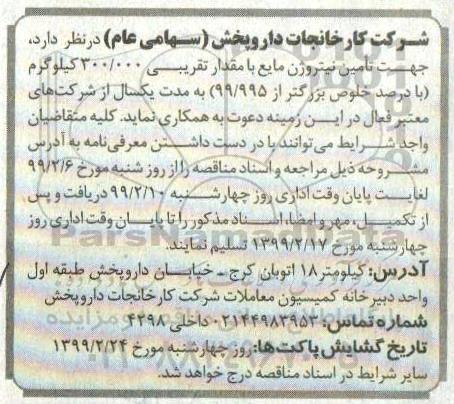 شرکت کارخانجات داروپخش (سهامی عام) در نظر دارد،
جهت تأمین نیتروژن مایع با مقدار تقریبی ۳۰۰/۰۰۰ کیلوگرم
(با درصد خلوص بزرگتر از ۹۹/۹۹۵) به مدت یکسال از شرکت‌های
معتبر فعال در این زمینه دعوت به همکاری نماید. کلیه متقاضیان
واجد شرایط می‌توانند با در دست داشتن معرفی‌نامه به آدرس
مشروحه ذیل مراجعه و اسناد مناقصه را از روز شنبه مورخ ۹۹/۲/۶
لغایت پایان وقت اداری روز چهارشنبه ۹۹/۲/۱۰ دریافت و پس
از تکمیل، مهر و امضا، اسناد مذکور را تا پایان وقت اداری روز
چهارشنبه مورخ ۱۳۹۹/۲/۱۷ تسلیم نمایند.
آدرس: کیلومتر ۱۸ اتوبان کرج - خیابان داروپخش طبقه اول
واحد دبیرخانه کمیسیون معاملات شرکت کارخانجات داروپخش
شماره تماس: ۰۲۱۴۴۹۸۳۹۵۳ داخلی ۴۳۹۸
تاریخ گشایش پاکت‌ها: روز چهارشنبه مورخ ۱۳۹۹/۲/۲۴
سایر شرایط در اسناد مناقصه درج خواهد شد.
ParsNamadData